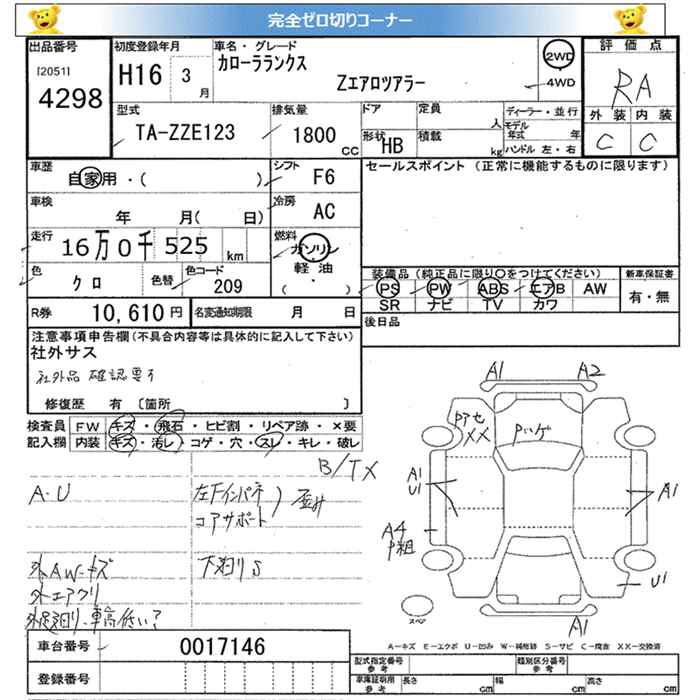 完全ゼロ切りコーナー
出品番号 初度登録年月 車名・グレード 評価点
[2051]
4298
H16 3月
カローラランクス
Zエアロツアラー
2WD
4WD
RA
型式 排気量 ドア 定員 人 ディーラー・並行 外装 内装
TA-ZZE123 1800cc 形状 HB 積載 kg モデル年式 年 ハンドル 左・右
C C
車歴 自家用・( ) シフト F6
セールスポイント (正常に機能するものに限ります)
車検 年 月( 日) 冷房 AC
走行 16万0千525km 燃料 ガソリン 軽油 ( )
色 クロ 色替 色コード 209
装備品 (純正品に限り○をつけてください) 新車保証書
PS PW ABS エアB AW
SR ナビ TV カワ
有・無
R券 10,610円 名変通知期限 月 日
後日品
注意事項申告欄(不具合内容等は具体的に記入して下さい)
社外サス
社外品 確認要す
修復歴 有 〔箇所 〕
検査員 FW キズ・飛石・ヒビ割・リペア跡・×要
記入欄 内装 キズ・汚レ・コゲ・穴・スレ・キレ・破レ
B/TX
A・U
左下インパネ
コアサポート
外AW-キズ
下廻りS
外エアクリ
外足廻り、車高低い?
A1 A2
Pアせ
XX
Pハゲ
A1
U1
A1
A4
P粗
U1
A1
スペア
A-キズ E-エクボ U-凹み W-補修跡 S-サビ C-腐食 XX-交換済
車台番号 0017146
登録番号
型式指定番号 参考 類別区分番号 参考
車庫証明用 参考 長さ cm 幅 cm 高さ cm